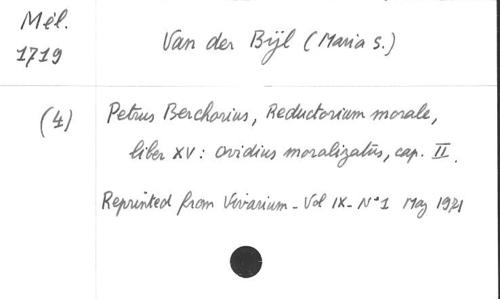 Mél.
1719
Van der Bijl (Maria S.)
(4)
Petrus Berchorius, Reductorium morale,
liber XV: Ovidius moralizatus, cap. II.
Reprinted from Vivarium - Vol IX - N° 1 May 1971